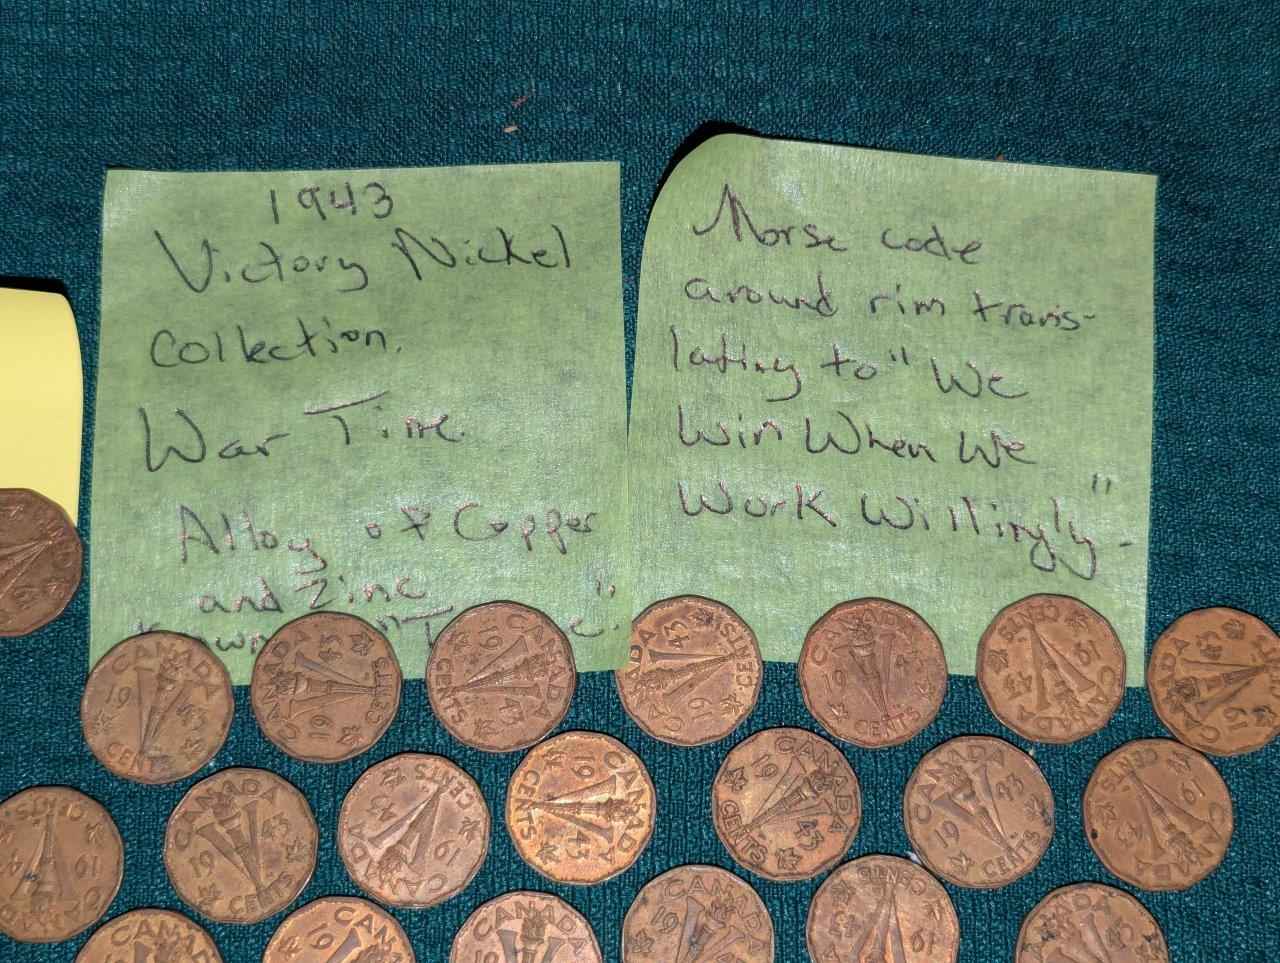 1943
Victory Nickel
Collection.
War Time.
Alloy of Copper
and Zinc
Morse code
around rim trans-
lating to "We
Win When We
Work Willingly"-
CANADA
19 43
CENTS
CANADA
19 43
CENTS
CANADA
19 43
CENTS
CANADA
19 43
CENTS
CANADA
19 43
CENTS
CANADA
19 43
CENTS
CANADA
19 43
CANADA
19
CENTS
CANADA
19 43
CENTS
CANADA
19 43
CENTS
CANADA
19 43
CENTS
CANADA
19 43
CENTS
CANADA
19 43
CENTS
19 43
CENTS
CANADA
19
CANADA
19
CANADA
19
CENTS
19 43